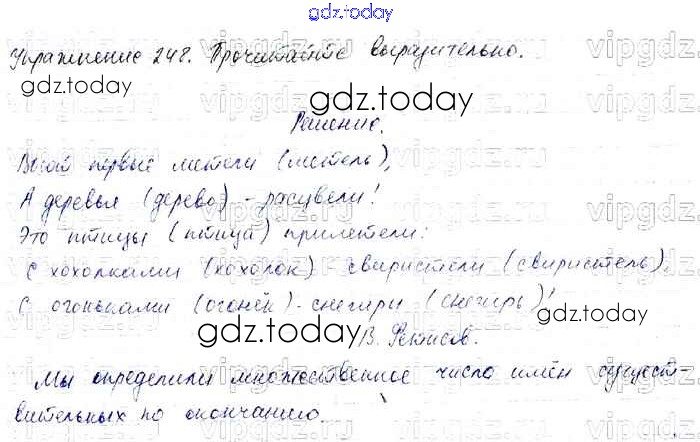 gdz.today
Упражнение 248. Прочитайте выразительно.
gdz.today
gdz.today
Решение.
Воют первые метели (метель),
А деревья (дерево) - расцвели!
Это птицы (птица) прилетели:
С хохолками (хохолок) - свиристели (свиристель),
С огоньками (огонёк) - снегири (снегирь)!
gdz.today
gdz.today
В. Фетисов.
Мы определили множественное число имён сущест-
вительных по окончанию